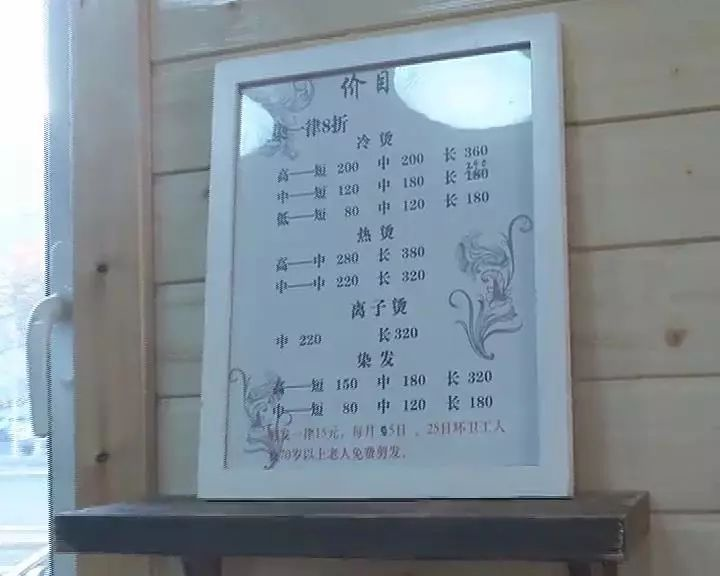 价目
染一律8折
冷烫
高一短 200 中 200 长 360
240
中一短 120 中 180 长 180
低一短 80 中 120 长 180
热烫
高一中 280 长 380
中一中 220 长 320
离子烫
中 220 长320
染发
高一短 150 中 180 长 320
中一短 80 中 120 长 180
剪发一律15元，每月 5日 、25日环卫工人
70岁以上老人免费剪发。